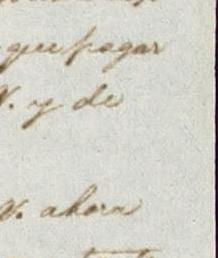 que pagar
V. y de
V. ahora